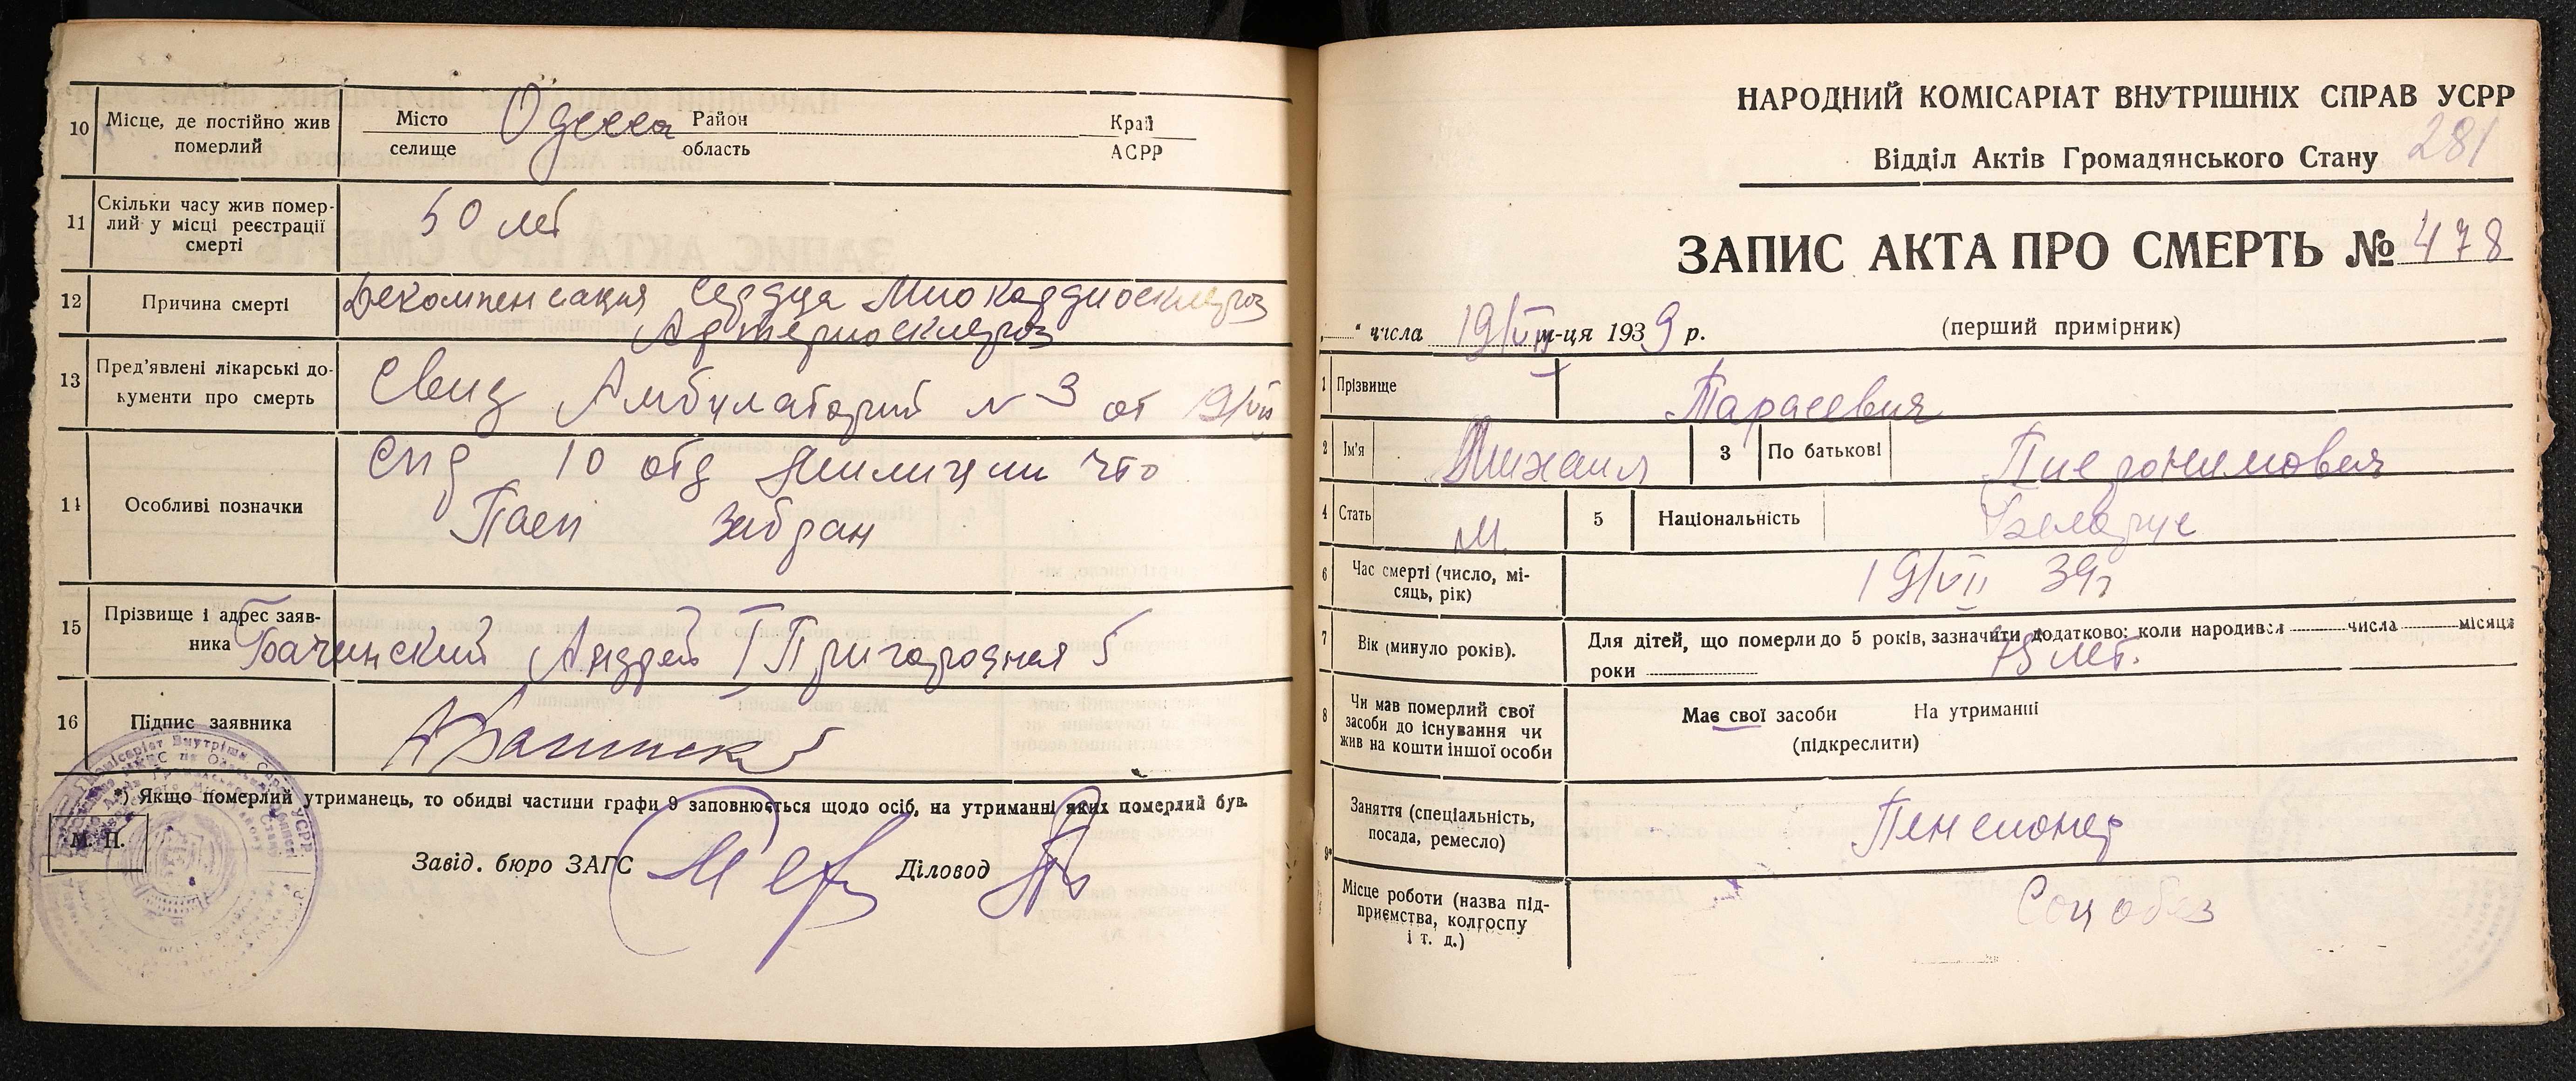 10 Місце, де постійно жив померлий
Місто селище Одесса Район область Край АСРР
11 Скільки часу жив помер-
лий у місці реєстрації
смерті
50 лет
12 Причина смерті
Декомпенсация сердца Миокардиосклероз
Артериосклероз
13 Пред'явлені лікарські до-
кументи про смерть
Свид Амбулаторий N 3 от 19/VII
14 Особливі позначки
Спр 10 отд Милиции что
Пасп забран
15 Прізвище і адрес заяв-
ника
Бачинский Андрей I Пригородная 5
16 Підпис заявника
*) Якщо померлий утриманець, то обидві частини графи 9 заповнюється щодо осіб, на утриманні яких померлий був.
М. П.
Завід. бюро ЗАГС Діловод
НАРОДНИЙ КОМІСАРІАТ ВНУТРІШНІХ СПРАВ УСРР
Відділ Актів Громадянського Стану 281
ЗАПИС АКТА ПРО СМЕРТЬ № 478
„ “ числа 19/VII м-ця 1939 р. (перший примірник)
1 Прізвище Тарасевич
2 Ім'я Михаил 3 По батькові Иеронимович
4 Стать М. 5 Національність Беларус
6 Час смерті (число, мі-
сяць, рік)
19/VII 39г
7 Вік (минуло років).
Для дітей, що померли до 5 років, зазначити додатково: коли народився числа місяця
роки 75 лет.
8 Чи мав померлий свої
засоби до існування чи
жив на кошти іншої особи
Має свої засоби На утриманні
(підкреслити)
9*
Заняття (спеціальність,
посада, ремесло)
Пенсионер
Місце роботи (назва під-
приємства, колгоспу
і т. д.)
Соцобез